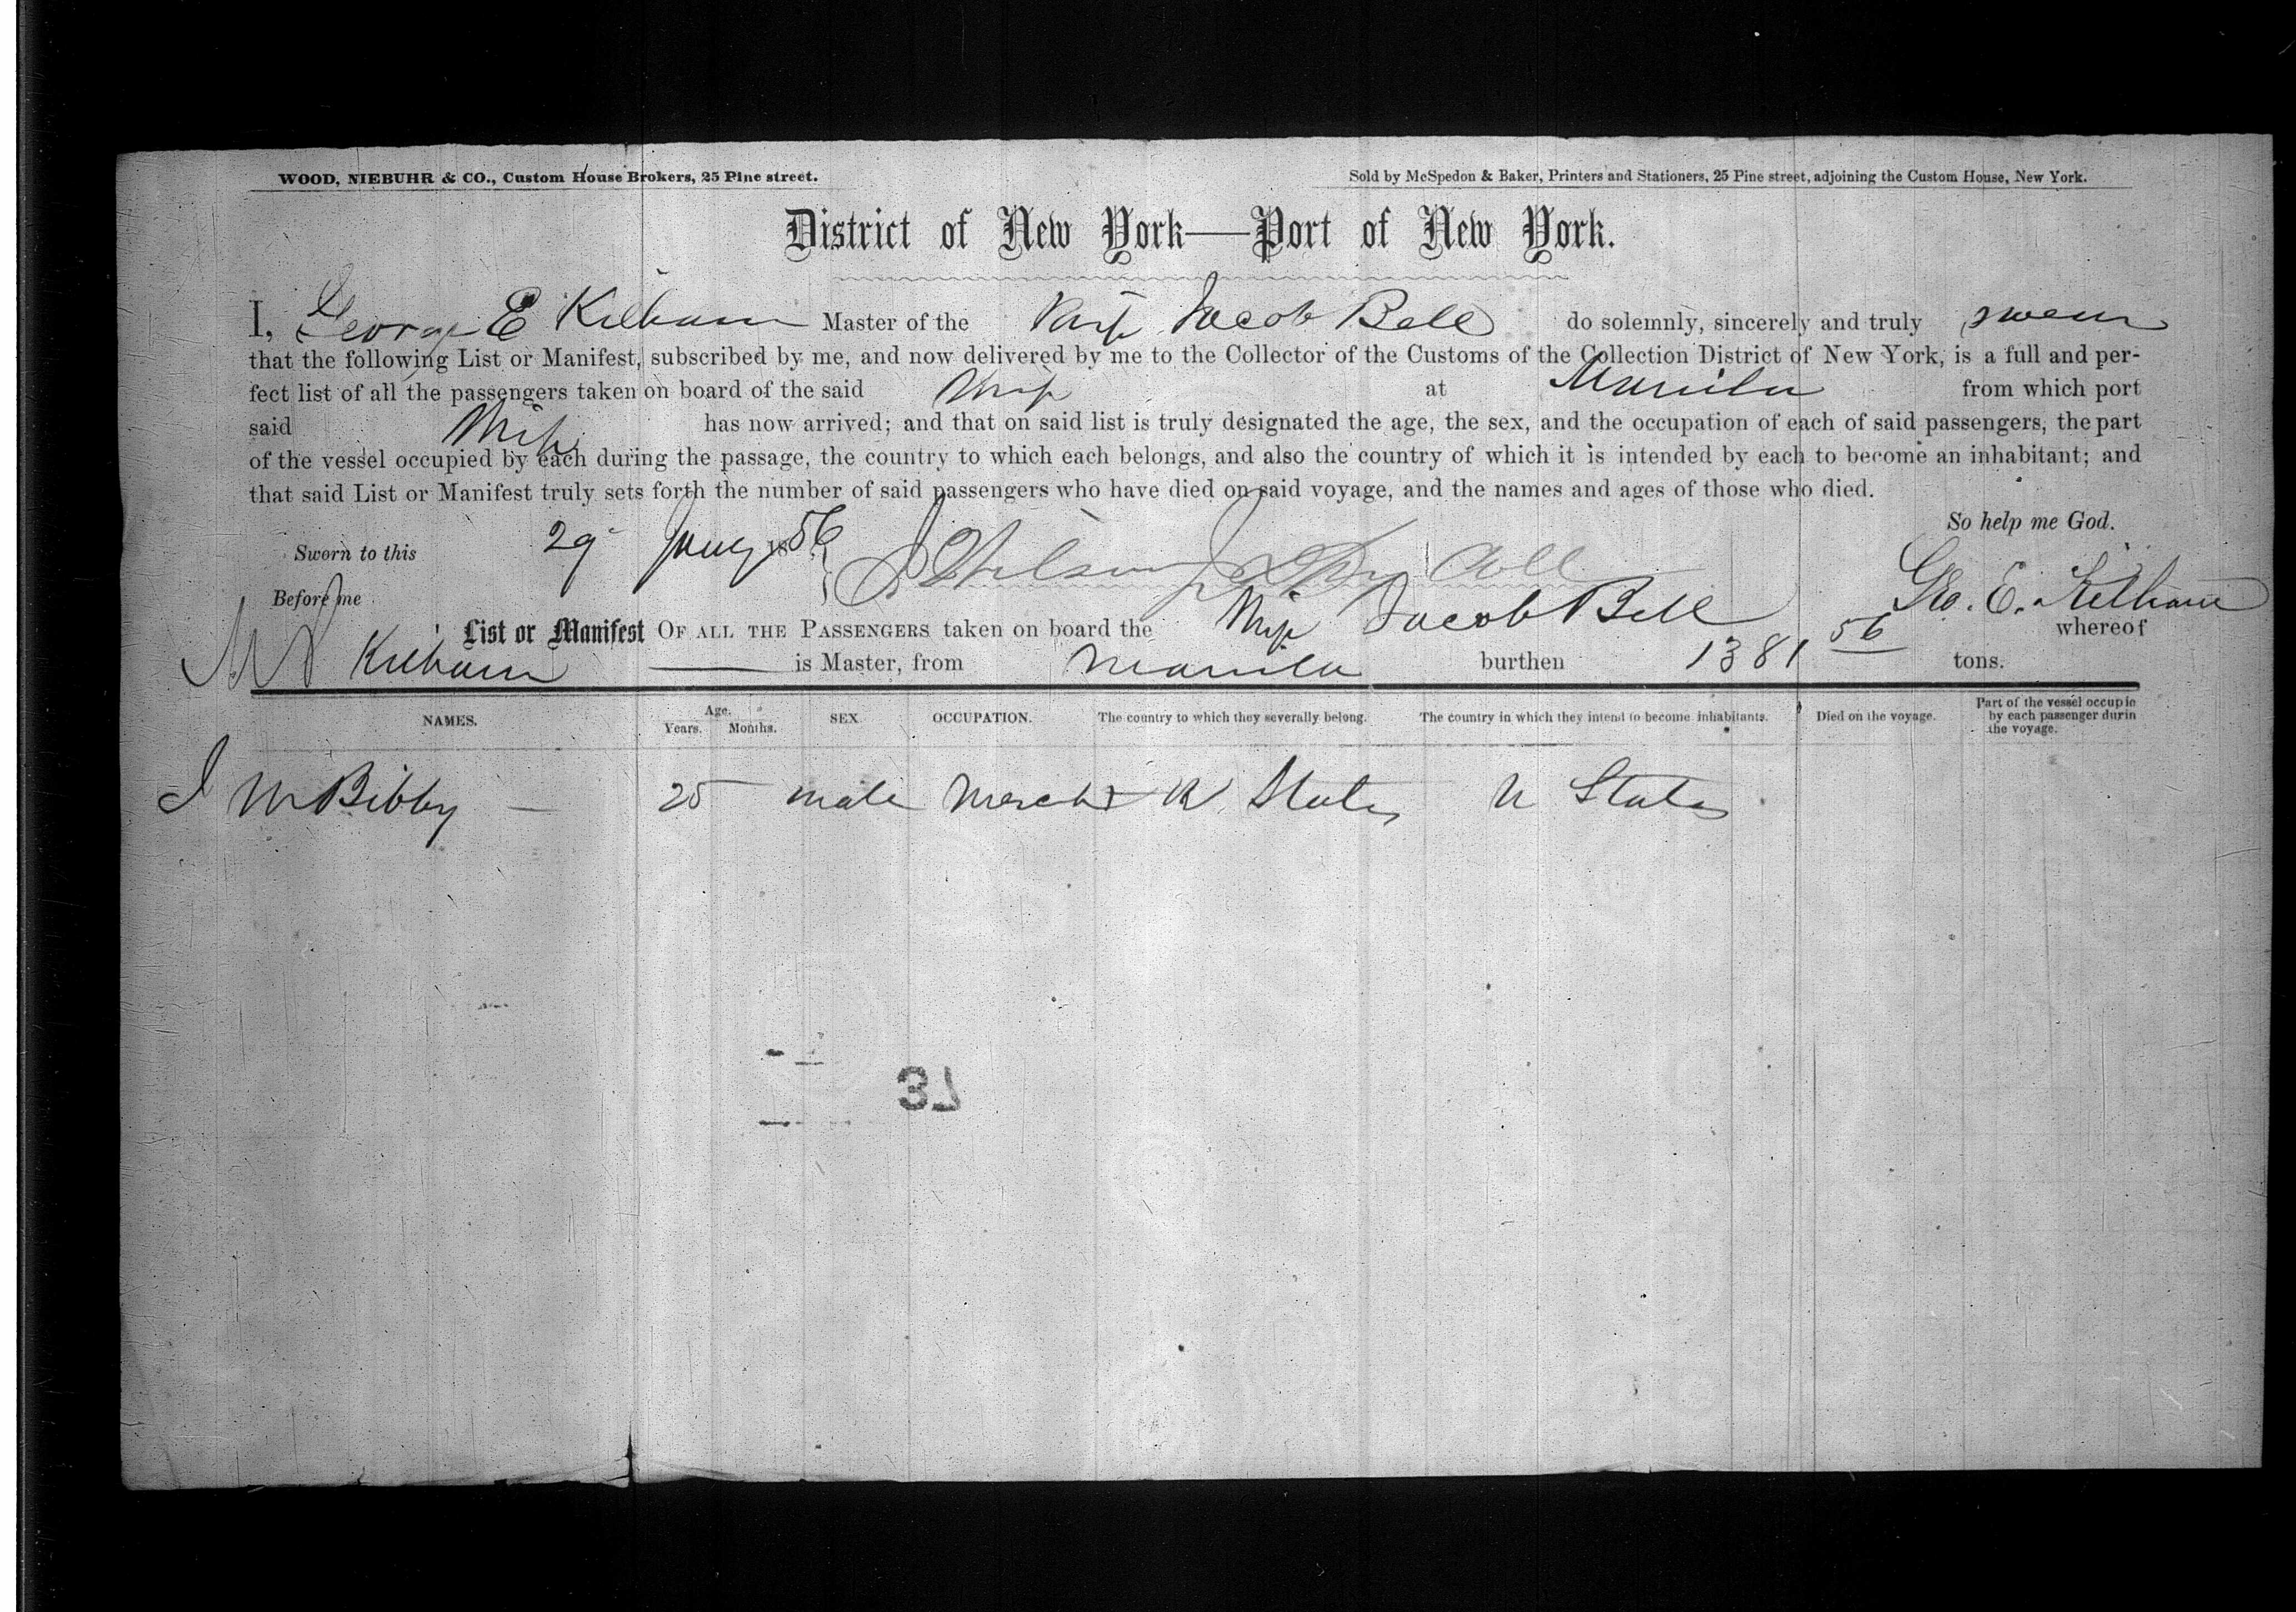 WOOD, NIEBUHR & CO., Custom House Brokers, 25 Pine street. Sold by McSpedon & Baker, Printers and Stationers, 25 Pine street, adjoining the Custom House, New York.
District of New York—Port of New York.
I, George E Kilham Master of the Ship Jacob Bell do solemnly, sincerely and truly swear
that the following List or Manifest, subscribed by me, and now delivered by me to the Collector of the Customs of the Collection District of New York, is a full and per-
fect list of all the passengers taken on board of the said Ship at Manila from which port
said Ship has now arrived; and that on said list is truly designated the age, the sex, and the occupation of each of said passengers, the part
of the vessel occupied by each during the passage, the country to which each belongs, and also the country of which it is intended by each to become an inhabitant; and
that said List or Manifest truly sets forth the number of said passengers who have died on said voyage, and the names and ages of those who died.
So help me God.
Sworn to this 29 Jany 1856
Before me Coll Geo. E. Kilham
List or Manifest OF ALL THE PASSENGERS taken on board the Ship Jacob Bell whereof
Kilham is Master, from Manila burthen 1381 56 tons.
NAMES. Age. Years. Months. SEX. OCCUPATION. The country to which they severally belong. The country in which they intend to become inhabitants. Died on the voyage. Part of the vessel occupie by each passenger durin the voyage.
J W Bibby — 25 male Mercht U States U States
37